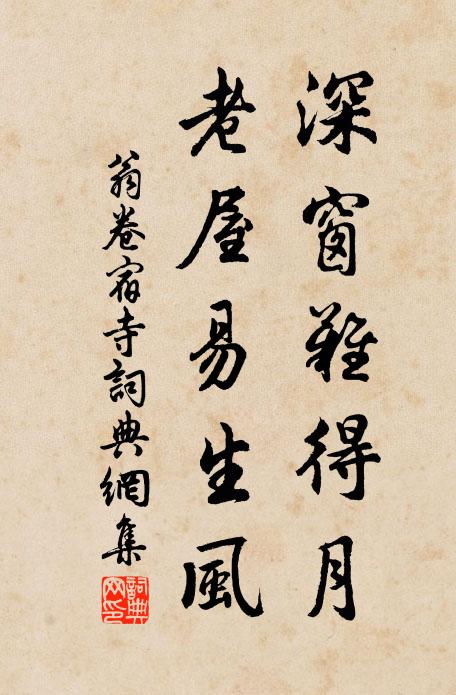 深窗難得月
老屋易生風
翁卷宿寺詞典網集
詞典网印